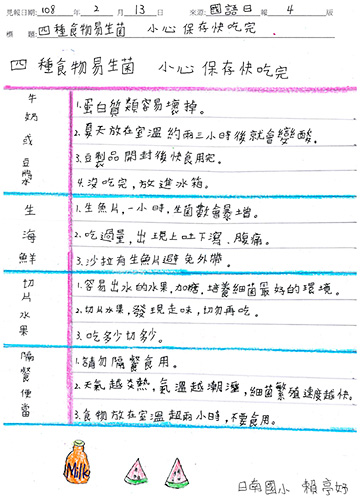 見報日期: 108 年 2 月 13 日 來源: 國語日 報 4 版
標 題: 四種食物易生菌 小心保存快吃完
四種食物易生菌 小心保存快吃完
牛奶或豆漿
1.蛋白質類容易壞掉。
2.夏天放在室溫約兩三小時後就會變酸。
3.豆製品開封後快食用完。
4.沒吃完,放進冰箱。
生海鮮
1.生魚片,一小時,生菌數會暴增。
2.吃過量,出現上吐下瀉、腹痛。
3.沙拉有生魚片避免外帶。
切片水果
1.容易出水的水果,加糖,培養細菌最好的環境。
2.切片水果,發現走味,切勿再吃。
3.吃多少切多少。
隔餐便當
1.請勿隔餐食用。
2.天氣越炎熱,氣溫越潮溼,細菌繁殖速度越快。
3.食物放在室溫超兩小時,不要食用。
Milk
日南國小 賴亭妤